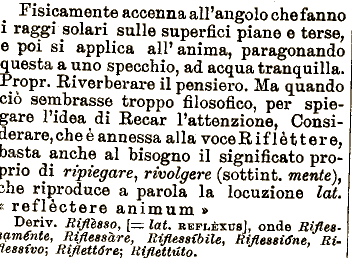 Fisicamente accenna all'angolo che fanno
i raggi solari sulle superfici piane e terse,
e poi si applica all'anima, paragonando
questa a uno specchio, ad acqua tranquilla.
Propr. Riverberare il pensiero. Ma quando
ciò sembrasse troppo filosofico, per spie-
gare l'idea di Recar l'attenzione, Consi-
derare, che è annessa alla voce Riflèttere,
basta anche al bisogno il significato pro-
prio di ripiegare, rivolgere (sottint. mente),
che riproduce a parola la locuzione lat.
« reflèctere animum »
Deriv. Riflèsso, [= lat. REFLÈXUS], onde Rifles-
saménte, Riflessàre, Riflessíbile, Riflessióne, Ri-
flessívo; Riflettóre; Riflettúto.